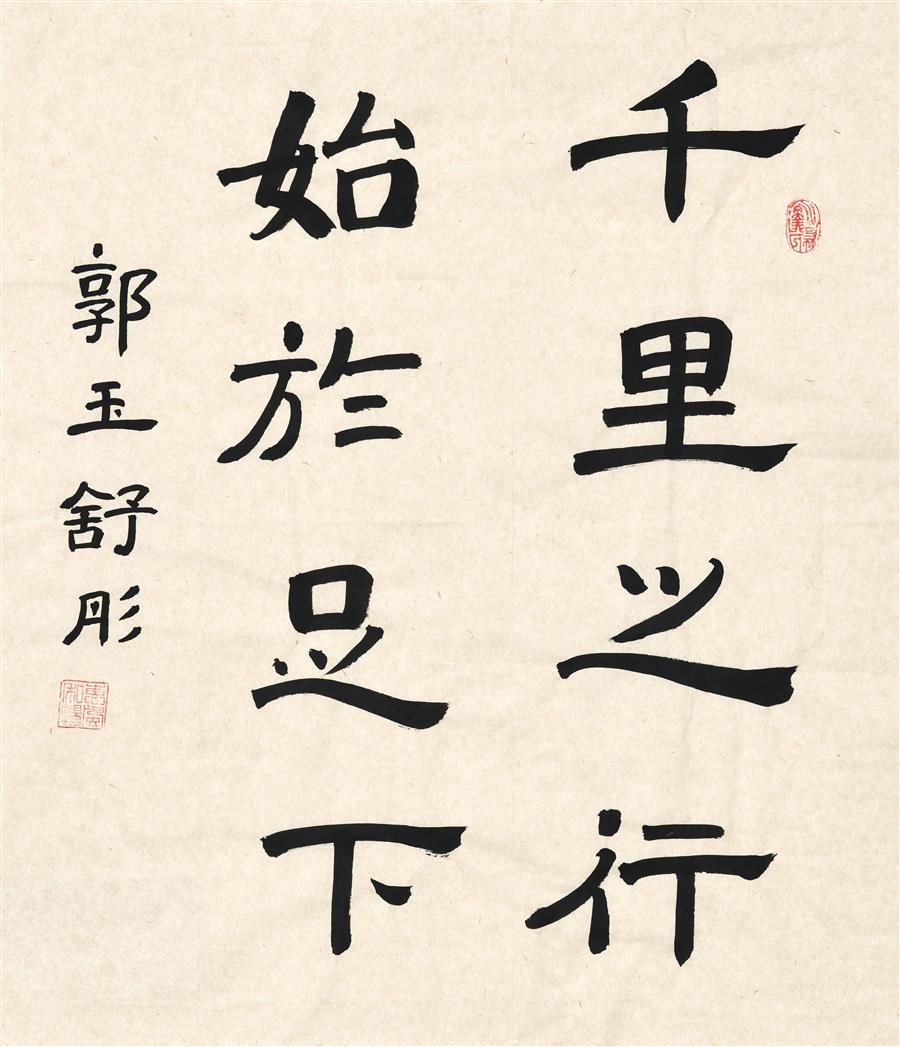 千里之行
始於足下
郭玉舒彤